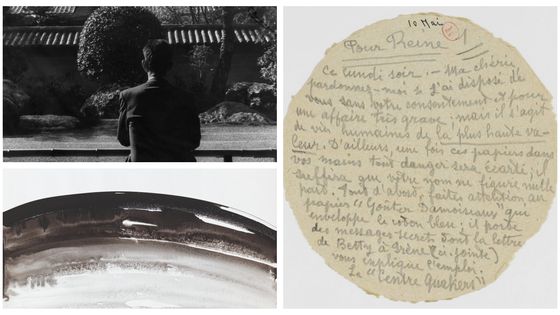 10 Mai
Pour Reine 1
Ce lundi soir. – Ma chérie
pardonnez-moi si j'ai disposé de
vous sans votre consentement et pour
une affaire très grave; mais il s'agit
de vies humaines de la plus haute va-
leur. D'ailleurs, une fois ces papiers dans
vos mains tout danger sera écarté; il
suffira que votre nom ne figure nulle
part. Tout d'abord, faites attention au
papier "Goûter Damoiseau" qui
enveloppe le coton bleu; il porte
des messages secrets dont la lettre
de Betty à Irène (ci-jointe)
vous explique l'emploi.
Le "Centre Quakers"